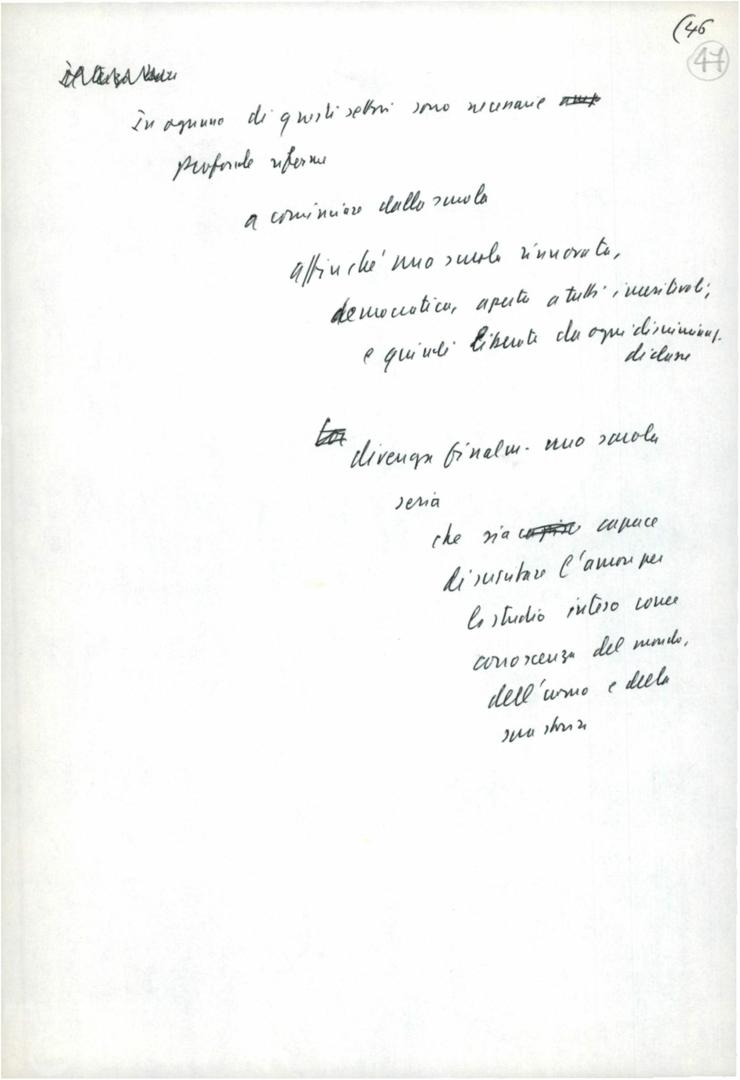 (46
47
In ognuno di questi settori sono necessarie
profonde riforme
a cominciare dalla scuola
affinché una scuola rinnovata,
democratica, aperta a tutti i meritevoli,
e quindi liberata da ogni discriminaz.
di classe
divenga finalm. una scuola
seria
che sia capace
di suscitare l'amore per
lo studio inteso come
conoscenza del mondo,
dell'uomo e della
sua storia